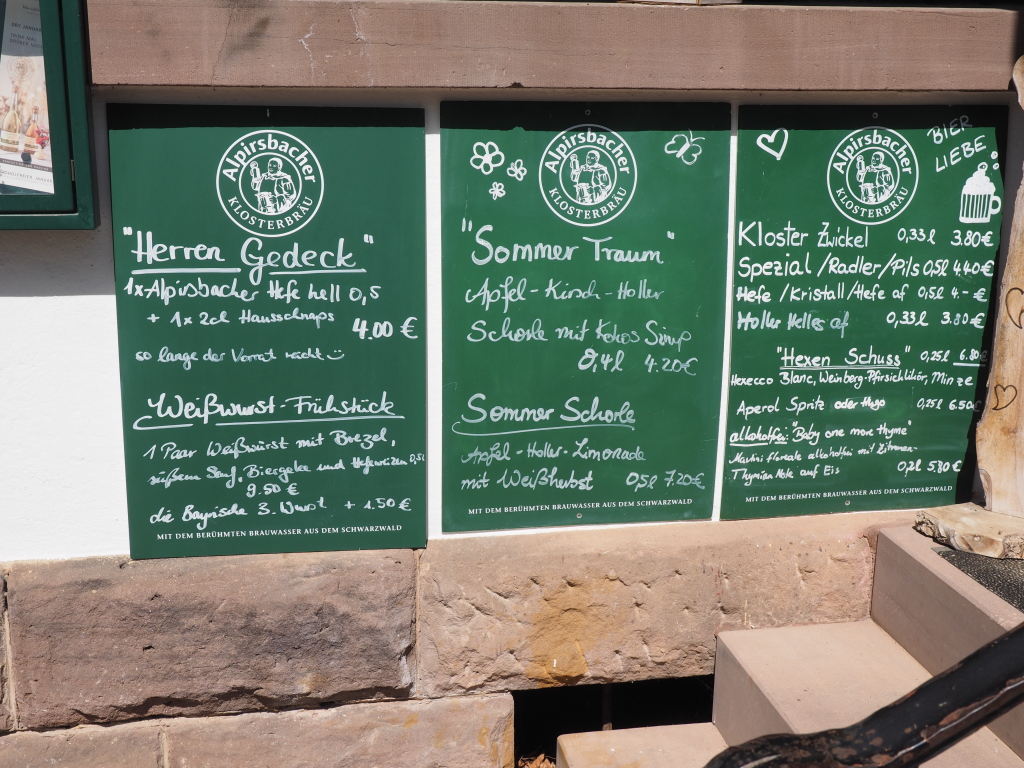 Alpirsbacher
KLOSTERBRÄU
"Herren Gedeck"
1x Alpirsbacher Hefe hell 0,5
+ 1x 2cl Hausschnaps
4.00 €
so lange der Vorrat reicht
Weißwurst-Frühstück
1 Paar Weißwürst mit Brezel,
süßem Senf, Biergelee und Hefeweizen 0,5l
9.50 €
die Bayrische 3. Wurst + 1.50 €
MIT DEM BERÜHMTEN BRAUWASSER AUS DEM SCHWARZWALD
Alpirsbacher
KLOSTERBRÄU
"Sommer Traum"
Apfel-Kirsch-Holler
Schorle mit Kokos Sirup
0,4l 4.20€
Sommer Schorle
Apfel-Holler-Limonade
mit Weißherbst 0,5l 7.20€
MIT DEM BERÜHMTEN BRAUWASSER AUS DEM SCHWARZWALD
Alpirsbacher
KLOSTERBRÄU
BIER
LIEBE
Kloster Zwickel 0,33l 3.80€
Spezial/Radler/Pils 0,5l 4.40€
Hefe/Kristall/Hefe af 0,5l 4.- €
Holler Helles af 0,33l 3.80€
"Hexen Schuss" 0,25l 6.80
Hexecco Blanc, Weinberg-Pfirsichlikör, Minze
Aperol Spritz oder Hugo 0,25l 6.50€
alkoholfrei: "Baby one more thyme"
Martini floreale alkoholfrei mit Zitronen-
Thymian Note auf Eis 0,2l 5,80€
MIT DEM BERÜHMTEN BRAUWASSER AUS DEM SCHWARZWALD